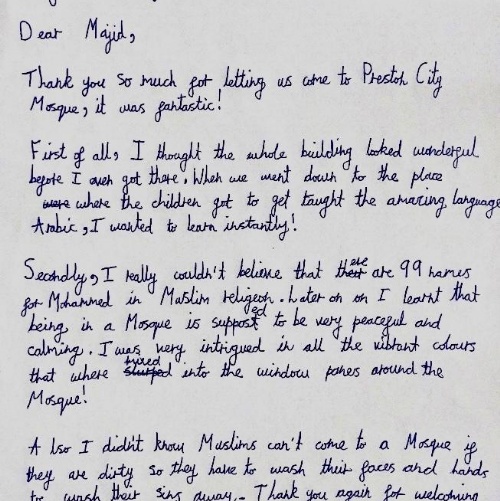 Dear Majid,
Thank you so much for letting us come to Preston City
Mosque, it was fantastic!
First of all, I thought the whole building looked wonderful
before I even got there. When we went down to the place
were where the children got to get taught the amazing language
Arabic, I wanted to learn instantly!
Secondly, I really couldn't believe that there are 99 names
for Mohammed in Muslim religeon. Later on on I learnt that
being in a Mosque is supposed to be very peaceful and
calming. I was very intrigued in all the vibrant colours
that where mixed into the window panes around the
Mosque!
Also I didn't know Muslims can't come to a Mosque if
they are dirty so they have to wash their faces and hands
to wash their sins away. Thank you again for welcoming